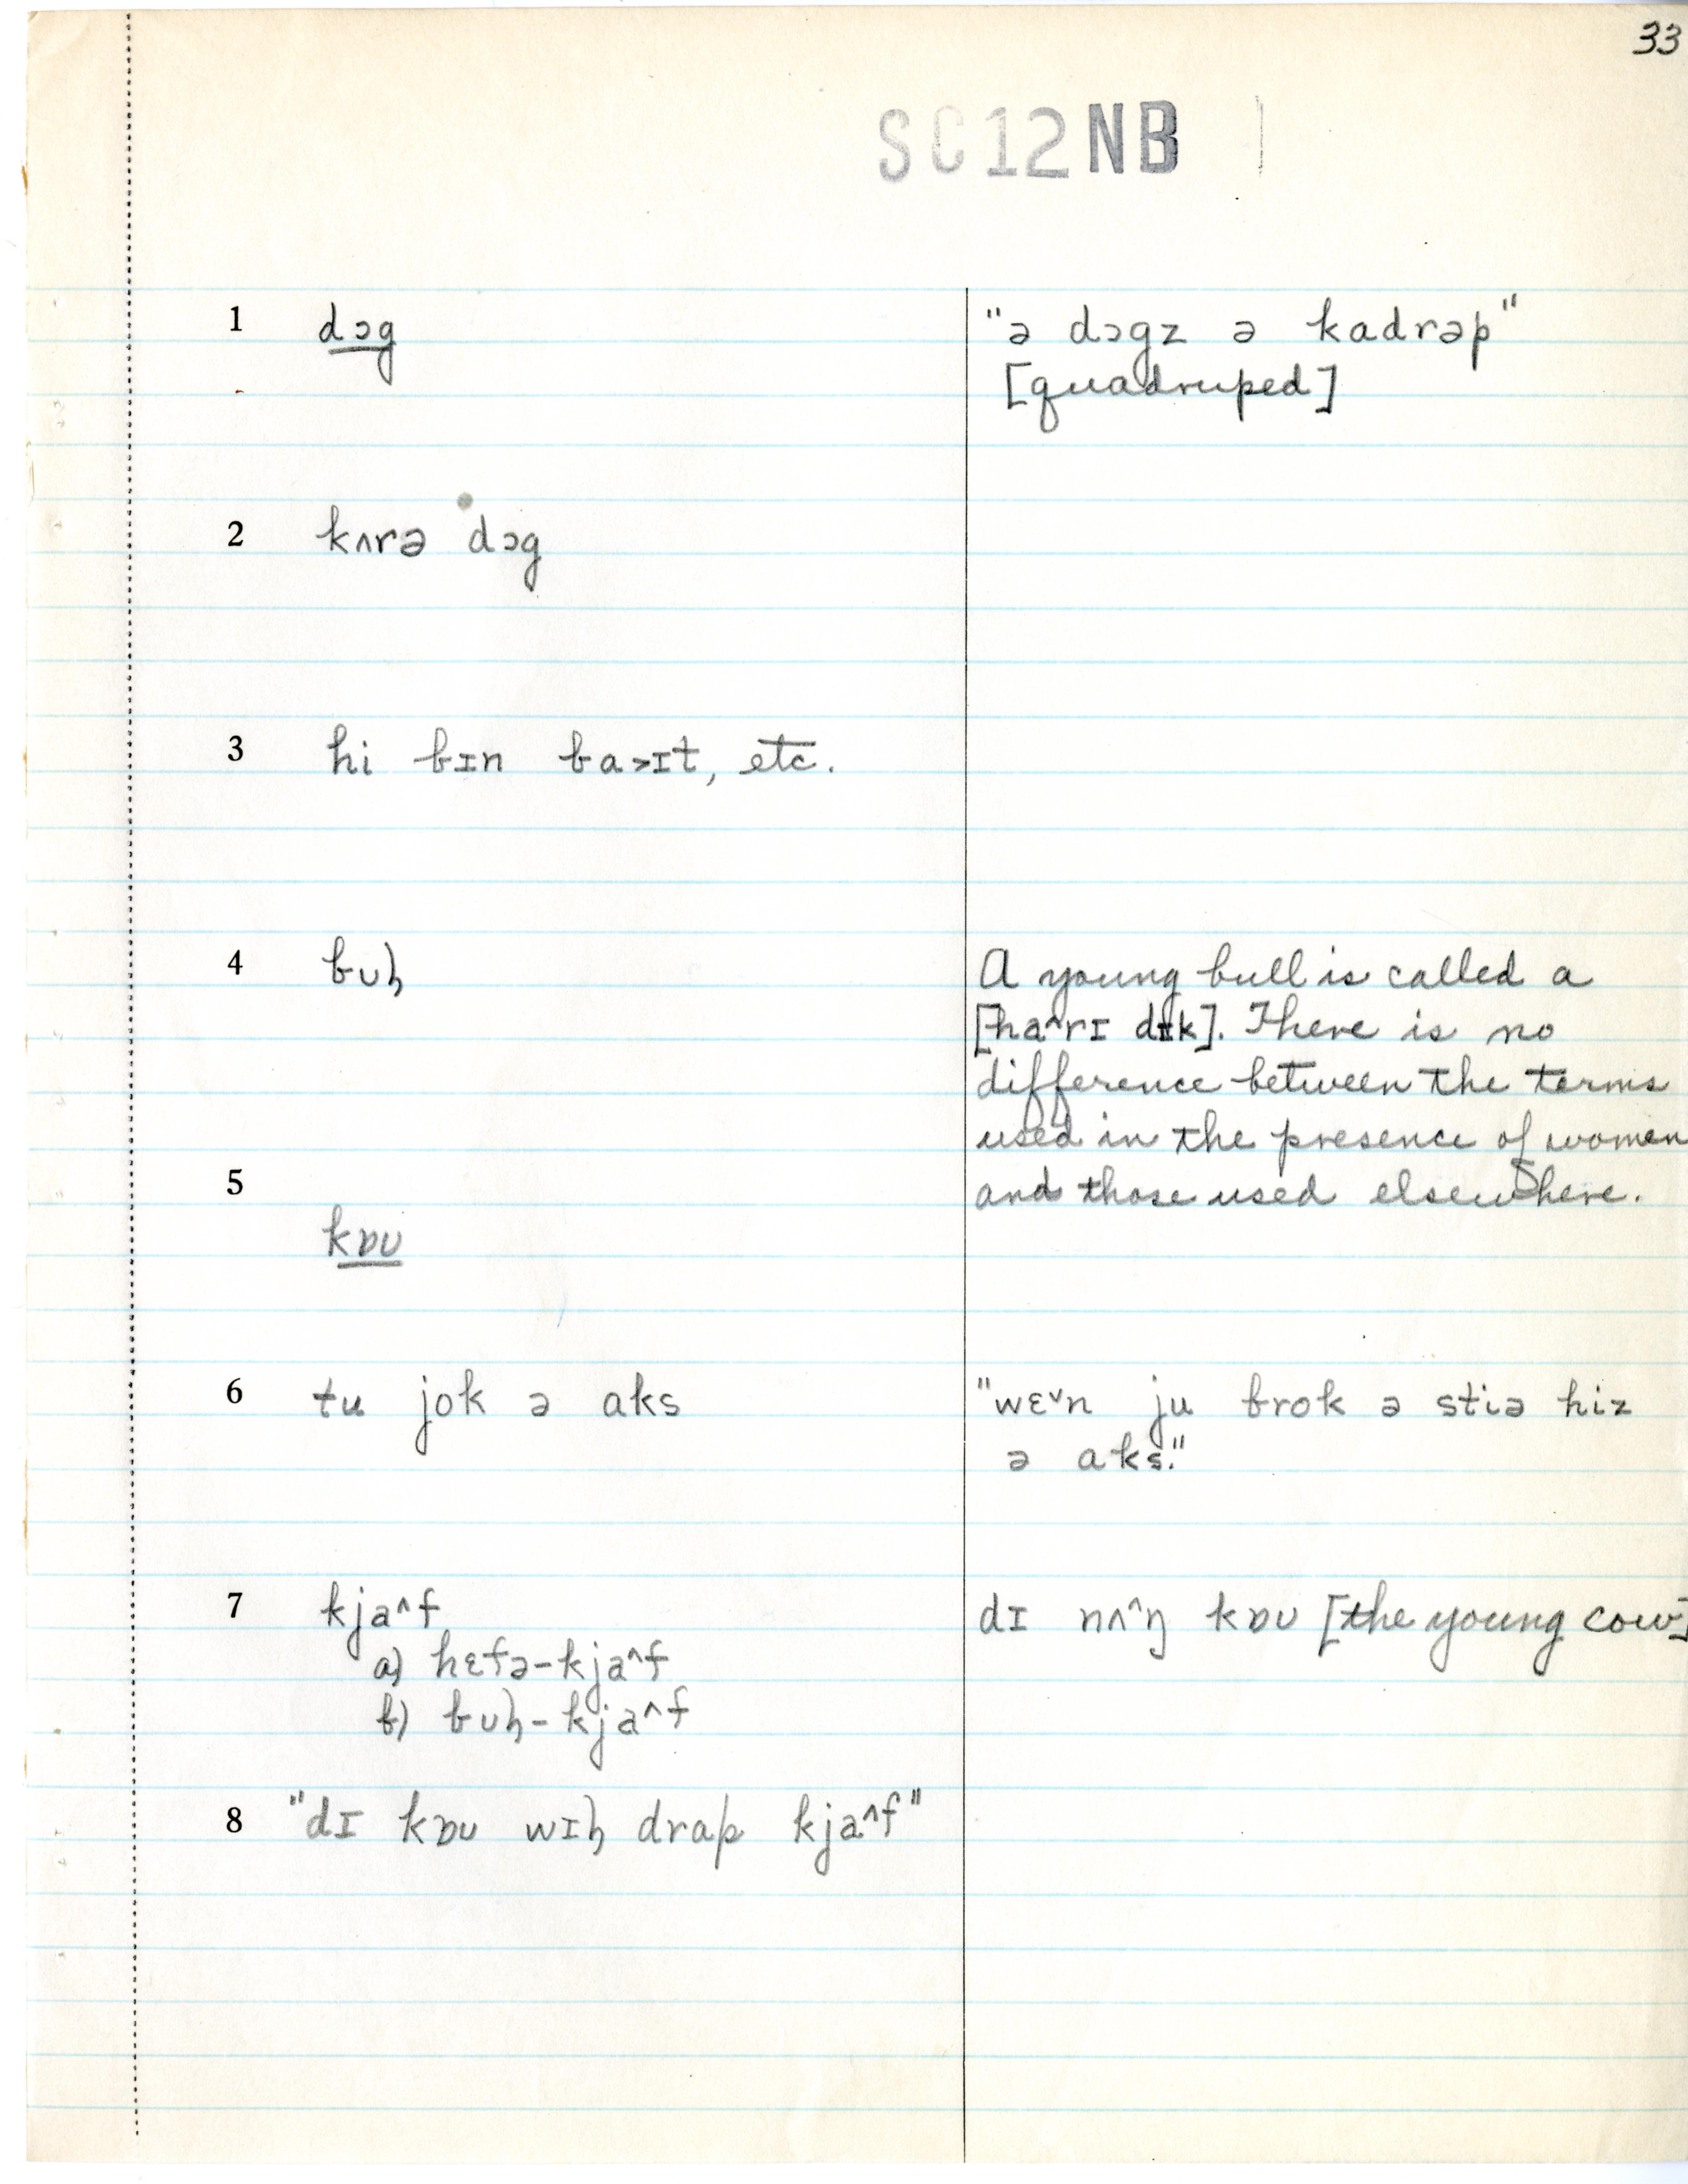 33
SC12NB
1 dɔg
"ə dɔgz ə kadrəp"
[quadruped]
2 kʌrə dɔg
3 hi bɪn ba˃ɪt, etc.
4 bʊl̡
A young bull is called a
[ha^rɪ dɪk]. There is no
difference between the terms
used in the presence of women
and those used elsewhere.
5
kɒʊ
6 tu jok ə aks
"wɛ˅n ju brok ə stiə hiz
ə aks."
7 kja^f
dɪ nʌ^ŋ kɒʊ [the young cow]
a) hɛfə-kja^f
b) bʊl̡-kja^f
8 "dɪ kɒʊ wɪl̡ drap kja^f"